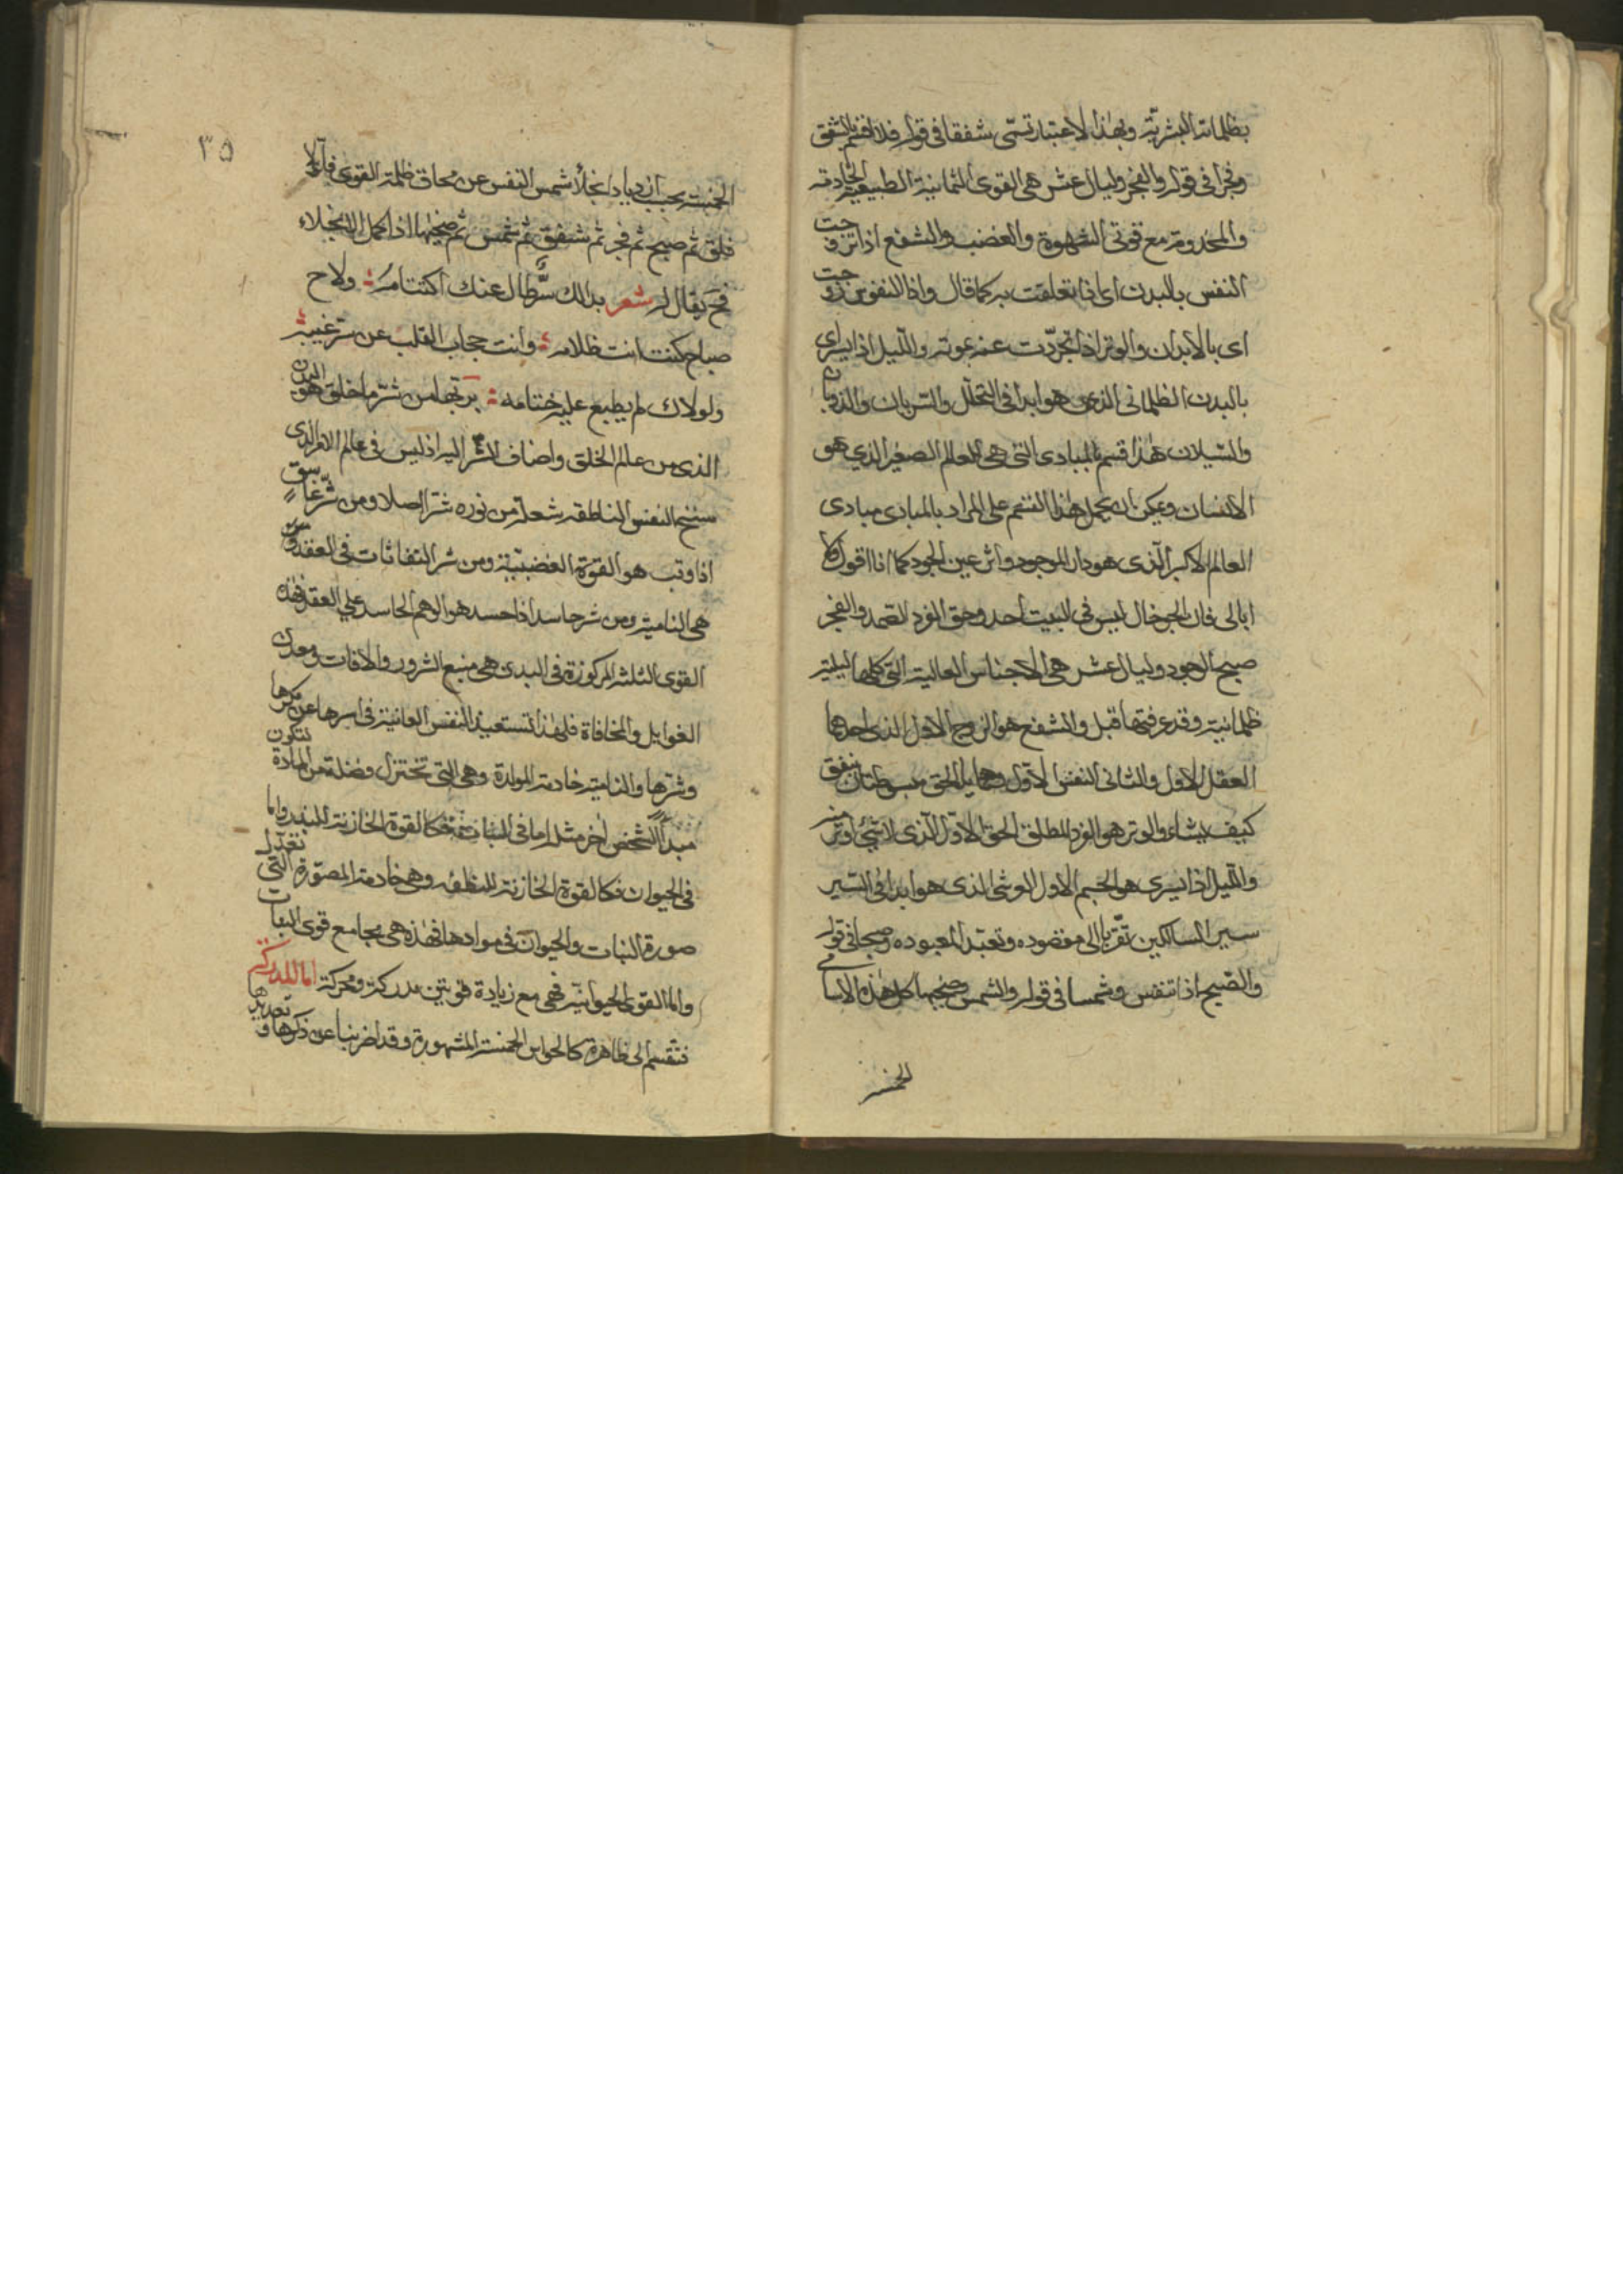 بظلماته البشرية وبهذا الاعتبار تسمى شفقا في قوله فلا اقسم بالشفق
وفجرا في قوله والفجر وليال عشر هي القوى الثمانية الطبيعية الخادمة
والمخدومة مع قوتي الشهوة والغضب والشفع اذا تزوجت
النفس بالبدن اى اذا تعلقت به كما قال واذا النفوس زوجت
اى بالابدان والوتر اذا تجردت عنه بموته والليل اذا يسرى اى
بالبدن الظلماني الذي هو ابدا في التحلل والسريان والذوبان
والسيلان هذا قسم بالمبادى التي هي العالم الصغير الذي هو
الانسان ويمكن ان يحمل هذا القسم على المراد بالمبادى مبادى
العالم الاكبر الذى هو دار الموجود واثر عين الجود كما انا اقول ولا
ابالى فان الجو خال ليس في البيت احد وحق الفرد الصمد والفجر
صبح الوجود وليال عشر هي الاجناس العالية التي كلها ليلية
ظلمانية وقد عرفتها قبل والشفع هو الزوج الاول الذى احدهما
العقل الاول والثاني النفس الاول وهما يدا الحق مبسوطتان ينفق
كيف يشاء والوتر هو الفرد المطلق الحق الاول الذى لا شئ اوتر منه
والليل اذا يسرى هو الجسم الاول العرشى الذى هو ابدا في السير
سير السالكين تقربا الى مقصوده وتعبدا لمعبوده وصبحا في قوله
والصبح اذا تنفس وشمسا في قوله والشمس وضحيها كل هذه الاسامي
الخمسة
٣٥
الخمسة بحسب ازدياد انجلاء شمس النفس عن محاق ظلمة القوى فاولا
فلق ثم صبح ثم فجر ثم شفق ثم شمس ثم ضحيها اذا كمل الانجلاء
فح يقال له شعر بدالك سر طال عنك اكتتامه ولاح
صباح كنت انت ظلامه وانت حجاب القلب عن سر غيبه
ولولاك لم يطبع عليه ختامه برتجا من شر ما خلق هو البدن
الذي من عالم الخلق واضاف الشر اليه اذ ليس في عالم الامر الذى
سنخ النفس الناطقه شعلة من نوره شر اصلا ومن شر غاسق
اذا وقب هو القوة الغضبية ومن شر النفاثات في العقد
هي النامية ومن شر حاسد اذا حسد هو الوهم الحاسد على العقد فهذه
القوى الثلثة المركوزة في البدن هي منبع الشرور والافات ومعدن
الغوايل والمخافاة فلهذا تستعيذ النفس العانية في اسرها عن مكرها
وشرها والنامية خادمة المولدة وهي التي تختزل فضلة من المادة لتكون
مبدأ لشخص اخر مثله اما في النبات فكالقوة الخازنة للبذر واما
في الحيوان فكالقوة الخازنة للنطفه وهي خادمة المصورة التي تعدل
صورة النبات والحيوان في موادها فهذه هي مجامع قوى النبات
واما القوى الحيوانية فهي مع زيادة قوتين مدركة ومحركة اما المدركة
فتنقسم الى ظاهرة كالحواس الخمسة المشهورة وقد اضربنا عن ذكرها و تعديدها